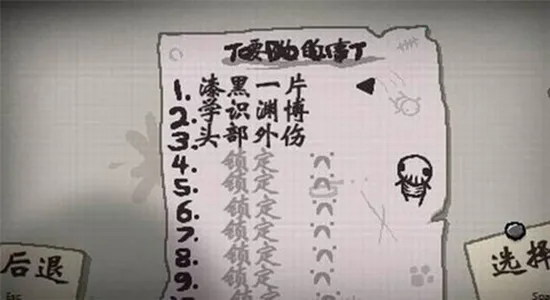 1. 漆黑一片
2. 学识渊博
3. 头部外伤
4. 锁定
5. 锁定
6. 锁定
7. 锁定
8. 锁定
9. 锁定
后退
选择